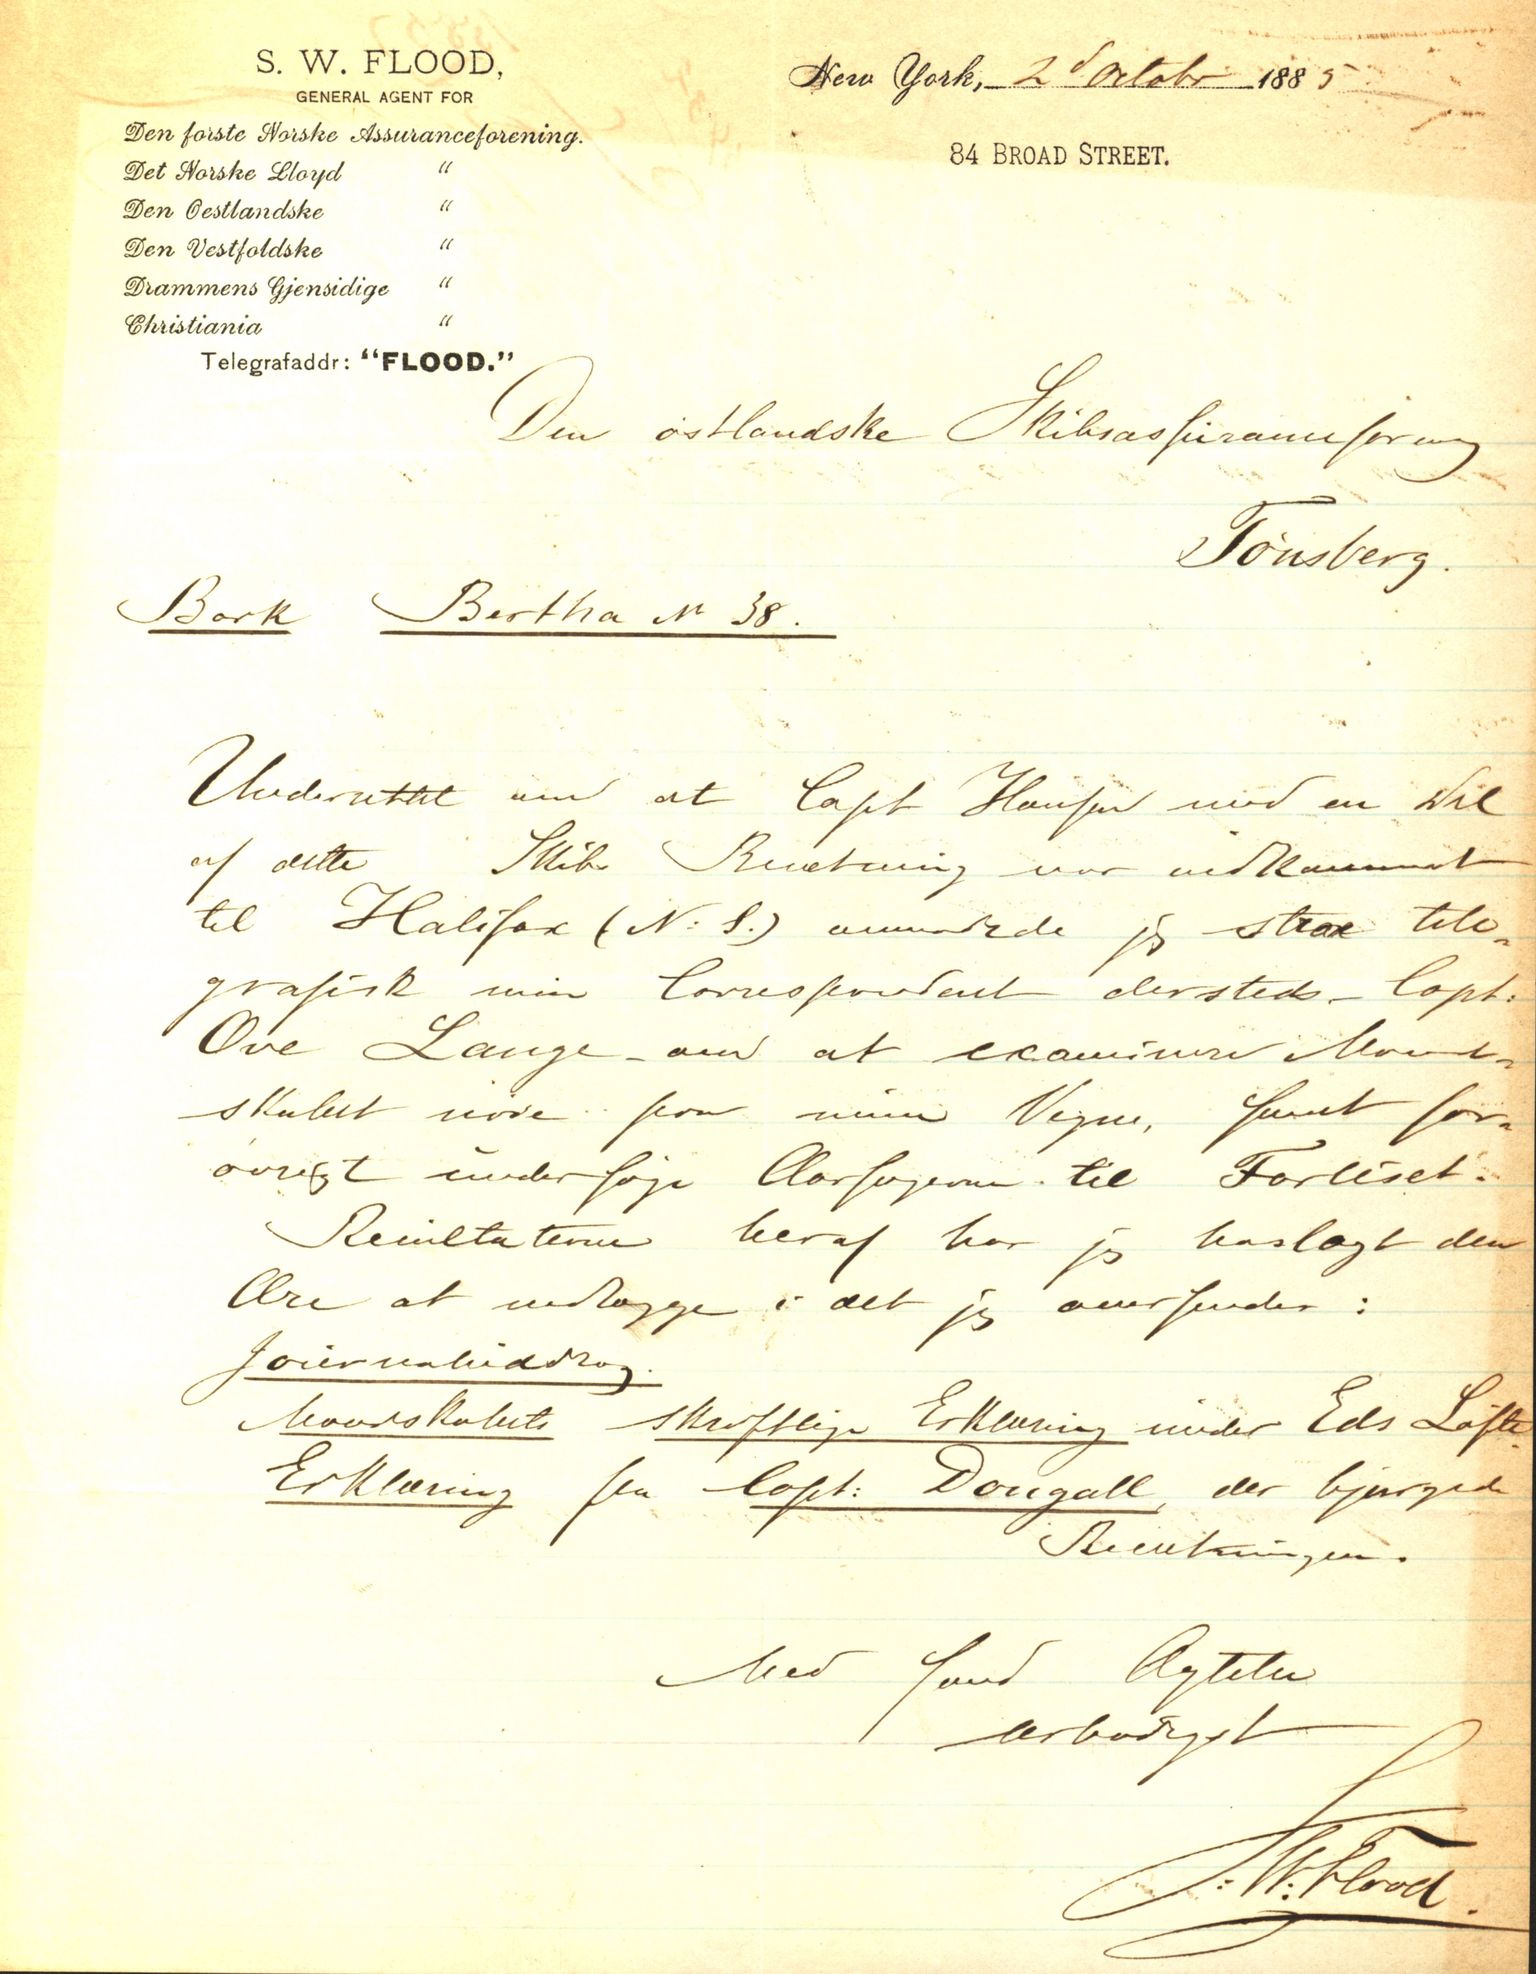 S. W. FLOOD,
GENERAL AGENT FOR
Den første Norske Assuranceforening.
Det Norske Lloyd "
Den Oestlandske "
Den Vestfoldske "
Drammens Gjensidige "
Christiania "
Telegrafaddr: "FLOOD."
New York, 2d Octobr 1885
84 BROAD STREET.
Den østlandske Skibsassuranceforening
Tönsberg.
Bark Bertha No 38.
Underrettet om at Capt Hansen med en Del
af dette Skibs Besætning var indkommet
til Halifax (N: S.) anmodede jeg strax tele-
grafisk min Correspondent dersteds - Capt:
Ove Lange - om at examinere Mand-
skabet nöie paa mine Vegne, samt for-
övrigt undersöge Aarsagerne til Forliset.
Resultaterne heraf har jeg hoslagt den
Ære at vedlægge i det jeg oversender:
Journaluddrag.
Mandskabets skriftlige Erklæring under Eds Löfte
Erklæring fra Capt: Dougall, der bjergede
Besætningen.
Med sand Agtelse
ærbödigst
S: W: Flood.